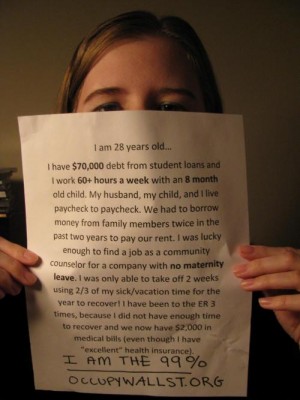 I am 28 years old...
I have $70,000 debt from student loans and
I work 60+ hours a week with an 8 month
old child. My husband, my child, and I live
paycheck to paycheck. We had to borrow
money from family members twice in the
past two years to pay our rent. I was lucky
enough to find a job as a community
counselor for a company with no maternity
leave. I was only able to take off 2 weeks
using 2/3 of my sick/vacation time for the
year to recover! I have been to the ER 3
times, because I did not have enough time
to recover and we now have $2,000 in
medical bills (even though I have
"excellent" health insurance).
I AM THE 99%
OCCUPYWALLST.ORG